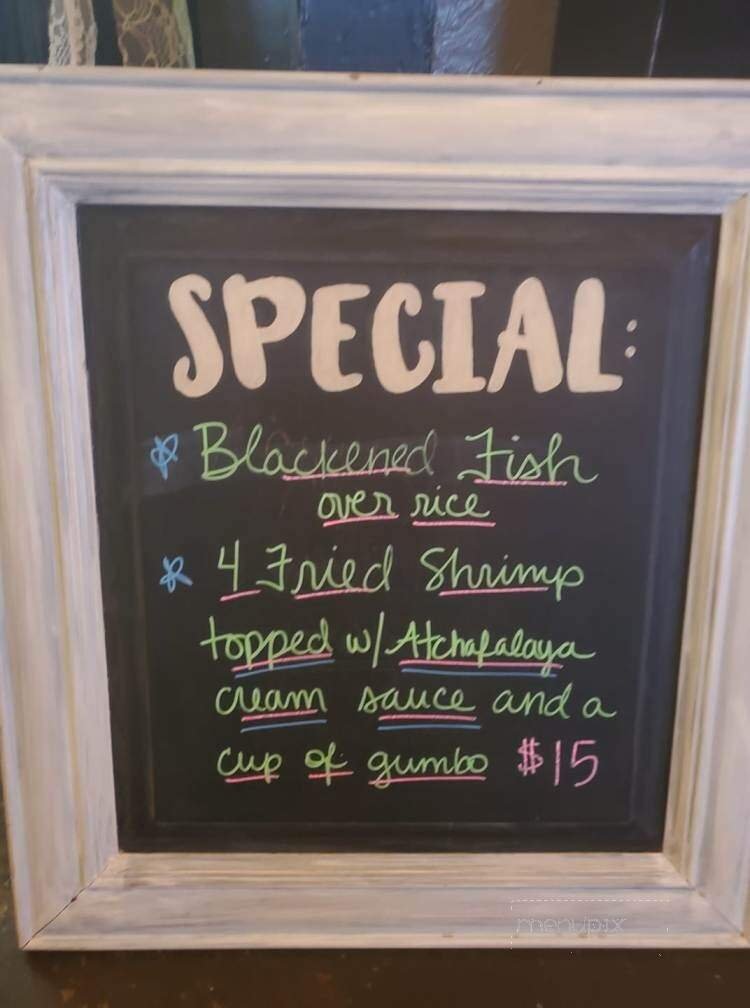 SPECIAL:
Blackened Fish
over rice
4 Fried Shrimp
topped w/ Atchafalaya
cream sauce and a
cup of gumbo $15
menupix